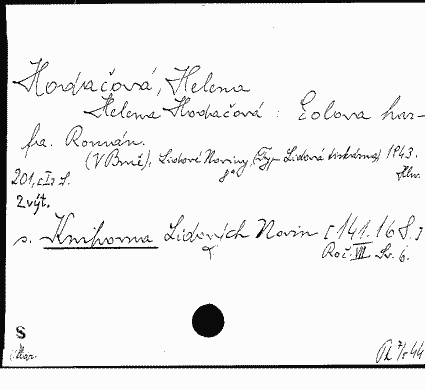 Hodačová, Helena
Helena Hodačová: Eolova har-
fa. Román.
(V Brně), Lidové Noviny (Typ. Lidová tiskárna) 1943.
201, [I] s. 8°
2 výt.
s. Knihovna Lidových Novin [141.168.]
Roč. VII Sv. 6.
S